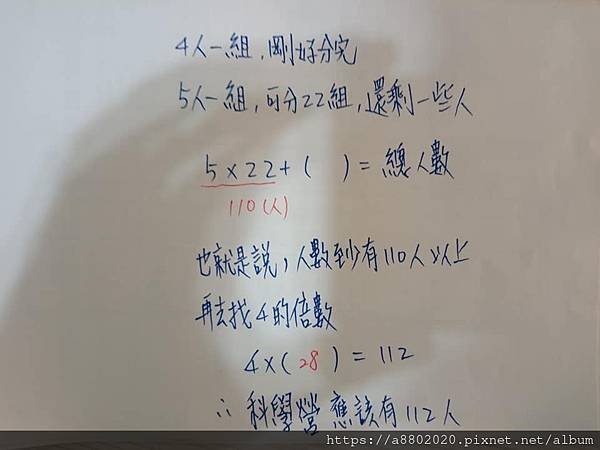 4人一組，剛好分完
5人一組，可分22組，還剩一些人
5×22+(  )=總人數
110(人)
也就是說，人數到少有110人以上
再去找4的倍數
4×(28)=112
∴科學營應該有112人
https://a8802020.pixnet.net/album